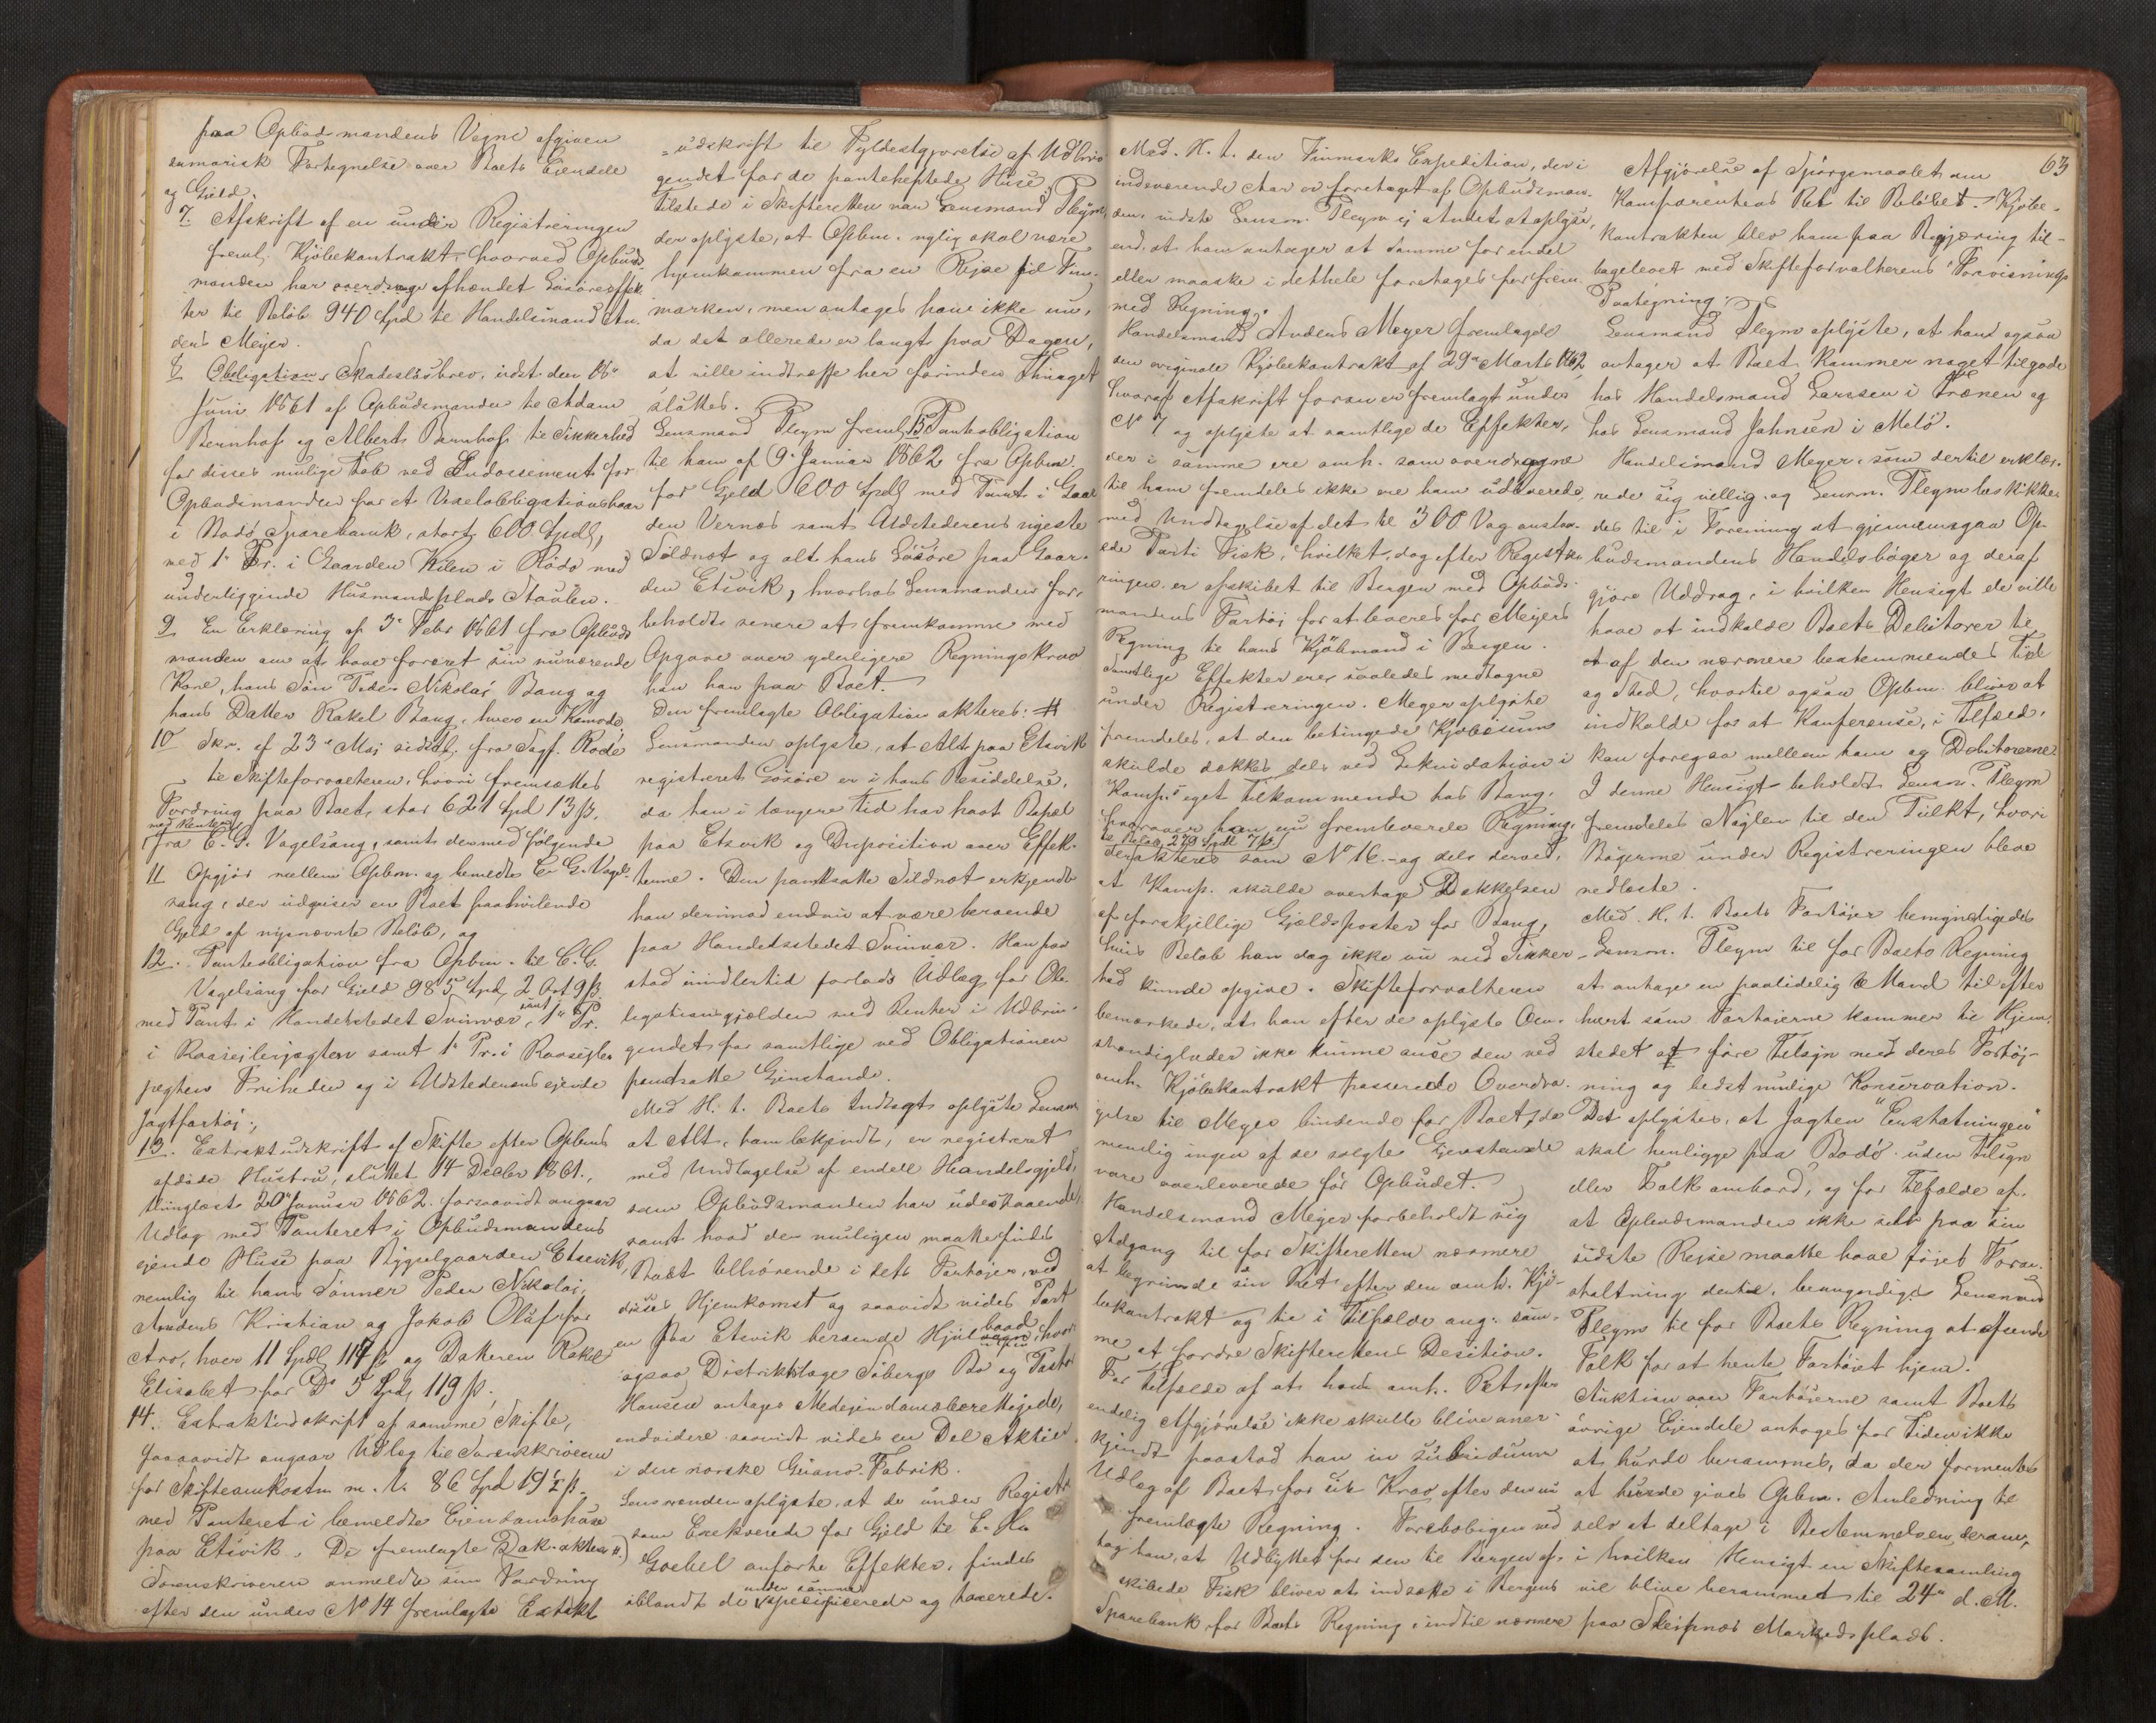 paa Opbudsmandens Vegne afgiven
sumarisk Fortegnelse over Boets Eiendele
og Gield.
7. Afskrift af en under Registreringen
freml. Kjöbekontrakt, hvorved Opbuds-
manden har overdraget afhændet Lösöreeffek
ter til Belöb 940 Spd til Handelsmand An.
ders Meyer.
8. Obligation, Skadeslösbrev, udst. den 18de
Juni 1861 af Opbudsmanden til Adam
Bernhof og Albert Bernhof til Sikkerhed
for disses mulige Tab ved Endossement for
Opbudsmanden for et Vexelobligationslaan
i Bodö Sparebank, stort 600 Spdl,
med 1ste Pr. i Gaarden Kilen i Rödö med
underliggende Husmandsplads Staulen.
9. En Erklæring af 3de Febr 1861 fra Opbuds
manden om at have foræret sin nuværende
Kone, hans Sön Peder Nikolai Bang og
hans Datter Rakel Bang, hver en Komode,
10 Skr. af 23de Maj sidstl. fra Sagf. Rode
til Skifteforvalteren, hvori fremsættes
Fordring paa Boet stor 621 Spd 13 ß.
med Renter
fra C. G. Vogelsang, samt dermed fölgende
11 Opgjör mellem Opbm. og bemeldte C. G. Vogel-
sang, der udviser en Boet paahvilende
Gjeld af nysnævnte Belöb, og
12. Panteobligation fra Opbm. til C. G.
Vogelsang for Gjeld 985 Spd 2 Ort 9 ß.
med Pant i Handelsstedet Svinvær, samt 1ste Pr.
i Raaseilerjægten samt 1ste Pr. i Raaseyler
jægten Friheden og i Udstederens ejende
Jagtfartöj.;
13. Extraktudskrift af Skifte efter Opbms
afdöde Hustru, sluttet 14 Decbr 1861.,
thinglæst 20de Januar 1862. forsaavidt angaar
Udlæg med Panteret i Opbudsmandens
ejende Huse paa Byggelgaarden Etsevik,
nemlig til hans Sönner Peder Nikolai,
Anders Kristian og Jakob Oluf for
Arv, hver 11 Spdl 114 ß og Datteren Rakel
Elisabet for Do 5 Spd 119 ß.;
14. Extraktudskrift af samme Skifte,
forsaavidt angaar Udlæg til Sorenskriveren
for Skifteomkostn. m. V. 86 Spd 19½ ß.
med Panteret i bemeldte Eiendomshuse
paa Etsvik. De fremlagte Dok. akteres #.)
Sorenskriveren anmeldte sin Fordring
efter den under No 14 fremlagte Extrakt
=udskrift til Fyldestgjörelse af Udbrin
gendet for de panteheftede Huse.
Tilstede i Skifteretten var Lensmand Pleym,
der oplyste, at Opbm. nylig skal være
hjemkommen fra en Rejse til Fin-
marken, men antages han ikke nu,
da det allerede er langt paa Dagen,
at ville indtræffe her forinden Thinget
sluttes.
Lensmand Pleym freml. 15 Pantobligation
til ham af 9de Januar 1862 fra Opbm.
for Gjeld 600 Spdl med Pant i Gaar
den Vernes samt Udstederens nyeste
Sildnot og alt hans Lösöre paa Gaar-
den Etsvik, hvorhos Lensmanden for-
beholdt senere at fremkomme med
Opgave over yderligere Regningskrav
han har paa Boet.
Den fremlagte Obligation akteres: #
Lensmanden oplyste, at Alt paa Etsvik
registreret Lösöre er i hans Besiddelse,
da han i længere Tid har havt Bopæl
paa Etsvik og Disposition over Effek-
terne. Den pantsatte Sildnot erkjendte
han derimod endnu at være beroende
paa Handelsstedet Svinvær. Han paa
stod imidlertid forlods Udlæg for Ob-
ligationsgjælden med Renter i Udbrin-
gendet for samtlige ved Obligationen
pantsatte Gjenstande.
Med H. t. Boets Indtægt oplyste Lensm
at Alt, ham bekjendt, er registreret
med Undtagelse af endeel Handelsgjeld,
som Opbudsmanden har udestaaende,
samt hvad der muligen maatte findes
Boet tilhörende i dets Fartöjer ved
disses Hjemkomst og saavidt vides Part
en paa Etsvik beroende Hjulbaad, hvori
ogsaa Distriktslæge Söberg Bo og Pastor
Hansen antages Medejendomsberettigede,
endvidere saavidt vides en Del Aktier
i den norske Guano-Fabrik.
Lensmanden oplyste, at de under Registr
som Exekverede for Gjeld til C. Hr.
Goebel anförte Effekter, findes
iblandt de under samme specificerede og taxerede.
Med. H. t. den Finmarks Expedition, der i
indeværende Aar er foretaget af Opbudsman-
den, vidste Lensm. Pleym ej Andet at oplyse,
end, at han antager at samme for endel
eller maaske i dethele foretages for frem
med Regning.
Handelsmand Anders Meyer fremlagde
den originale Kjöbekontrakt af 29de Marts 1862,
hvoraf Afskrift foran er fremlagt under
No 7 og oplyste at samtlige de Effekter,
der i samme ere omh. som overdragne
til ham fremdeles ikke ere ham udleverede
med Undtagelse af det til 300 Vog anslaa-
ede Parti Fisk, hvilket dog efter Registre
ringen er afskibet til Bergen med Opbuds-
mandens Fartöj for at leveres for Meyers
Regning til hans Kjöbmand i Bergen.
Samtlige Effekter ere saaledes medtagne
under Registreringen. Meyer oplyste
fremdeles, at den betingede Kjöbesum
skulde dækkes dels ved Likvidation i
Komp.s eget Tilkommende hos Bang,
hvorover han nu fremleverede Regning,
til Belöb 279 Spdl 7 ß
der akteres som No 16.- og dels derved,
at Komp. skulde overtage Dækkelsen
af forskjellige Gjældsposter for Bang,
hvis Belöb han dog ikke nu med Sikker-
hed kunde opgive. Skifteforvalteren
bemærkede, at han efter de oplyste Om-
stændigheder ikke kunne anse den ved
omh. Kjöbekontrakt passerede Overdra-
gelse til Meyer bindende for Boet, da
nemlig ingen af de solgte Gjenstande
vare overleverede för Opbudet.
Handelsmand Meyer forbeholdt sig
Adgang til for Skifteretten nærmere
at begrunde sin Ret efter den omh. Kjö-
bekontrakt og til i Tilfælde ang. sam-
me at fordre Skifterettens Desition.
For Tilfælde af at hans omh. Ret efter
endelig Afgjörelse ikke skulle blive aner-
kjendt paastod han in subsidium
Udlæg af Boet for sit Krav efter den nu
fremlagte Regning. Foreløbigen ved
tog han, at Udbyttet for den til Bergen af-
skibede Fisk bliver at indsætte i Bergens
Sparebank for Boets Regning, indtil nærmere
63
Afgjörelse af Spörgsmaalet om
Komparentens Ret til Belöbet. Kjöbe-
kontrakten blev ham paa Begjæring til-
bageleveret med Skifteforvalterens Forevisnings
Paategning.
Lensmand Pleym oplyste, at han ogsaa
antager at Boet kommer noget tilgode
hos Handelsmand Larssen i Trænen og
hos Lensmand Johnsen i Melö.
Handelsmand Meyer, som dertil erklæ-
rede sig villig, og Lensm. Pleym beskikke-
des til i Forening at gjennemgaa Op-
budsmandens Handelsböger og deraf
gjöre Uddrag, i hvilken Hensigt de ville
have at indkalde Boets Debitorer til
et af dem nærmere bestemmendes Tid
og Sted, hvortil ogsaa Opbm. bliver at
indkalde for at Konference, i Tilfæld,
kan foregaa mellem ham og Debitorerne.
I denne Hensigt beholdt Lensm. Pleym
fremdeles Nöglen til den Pulkt, hvori
Bögerne under Registreringen bleve
nedlaste.
Med H. t. Boets Fartöjer bemyndigedes
Lensm. Pleym til for Boets Regning
at antage en paalidelig Mand til efter
hvert som Fartöierne kommer til Hjem-
stedet at före Tilsyn med deres Fortöj-
ning og bedst mulige Konservation.
Det oplystes, at Jagten "Enstatningen"
skal henligge paa Bodö uden Tilsyn
eller Folk ombord, og for Tilfælde af,
at Opbudsmanden ikke selv paa sin
sidste Rejse maatte have föiet Foran-
staltning dertil, bemyndiges Lensmand
Pleym til for Boets Regning at afsende
Folk for at hente Fartöjet hjem.
Auktion over Fartöierne samt Boets
övrige Ejendele antoges for Tiden ikke
at burde berammes, da der formentes
at burde gives Opbm. Anledning til
selv at deltage i Bestemmelsen derom,
i hvilken Hensigt en Skiftesamling
vil blive berammet til 24de d. M.
paa Skeipnes Markedsplads.